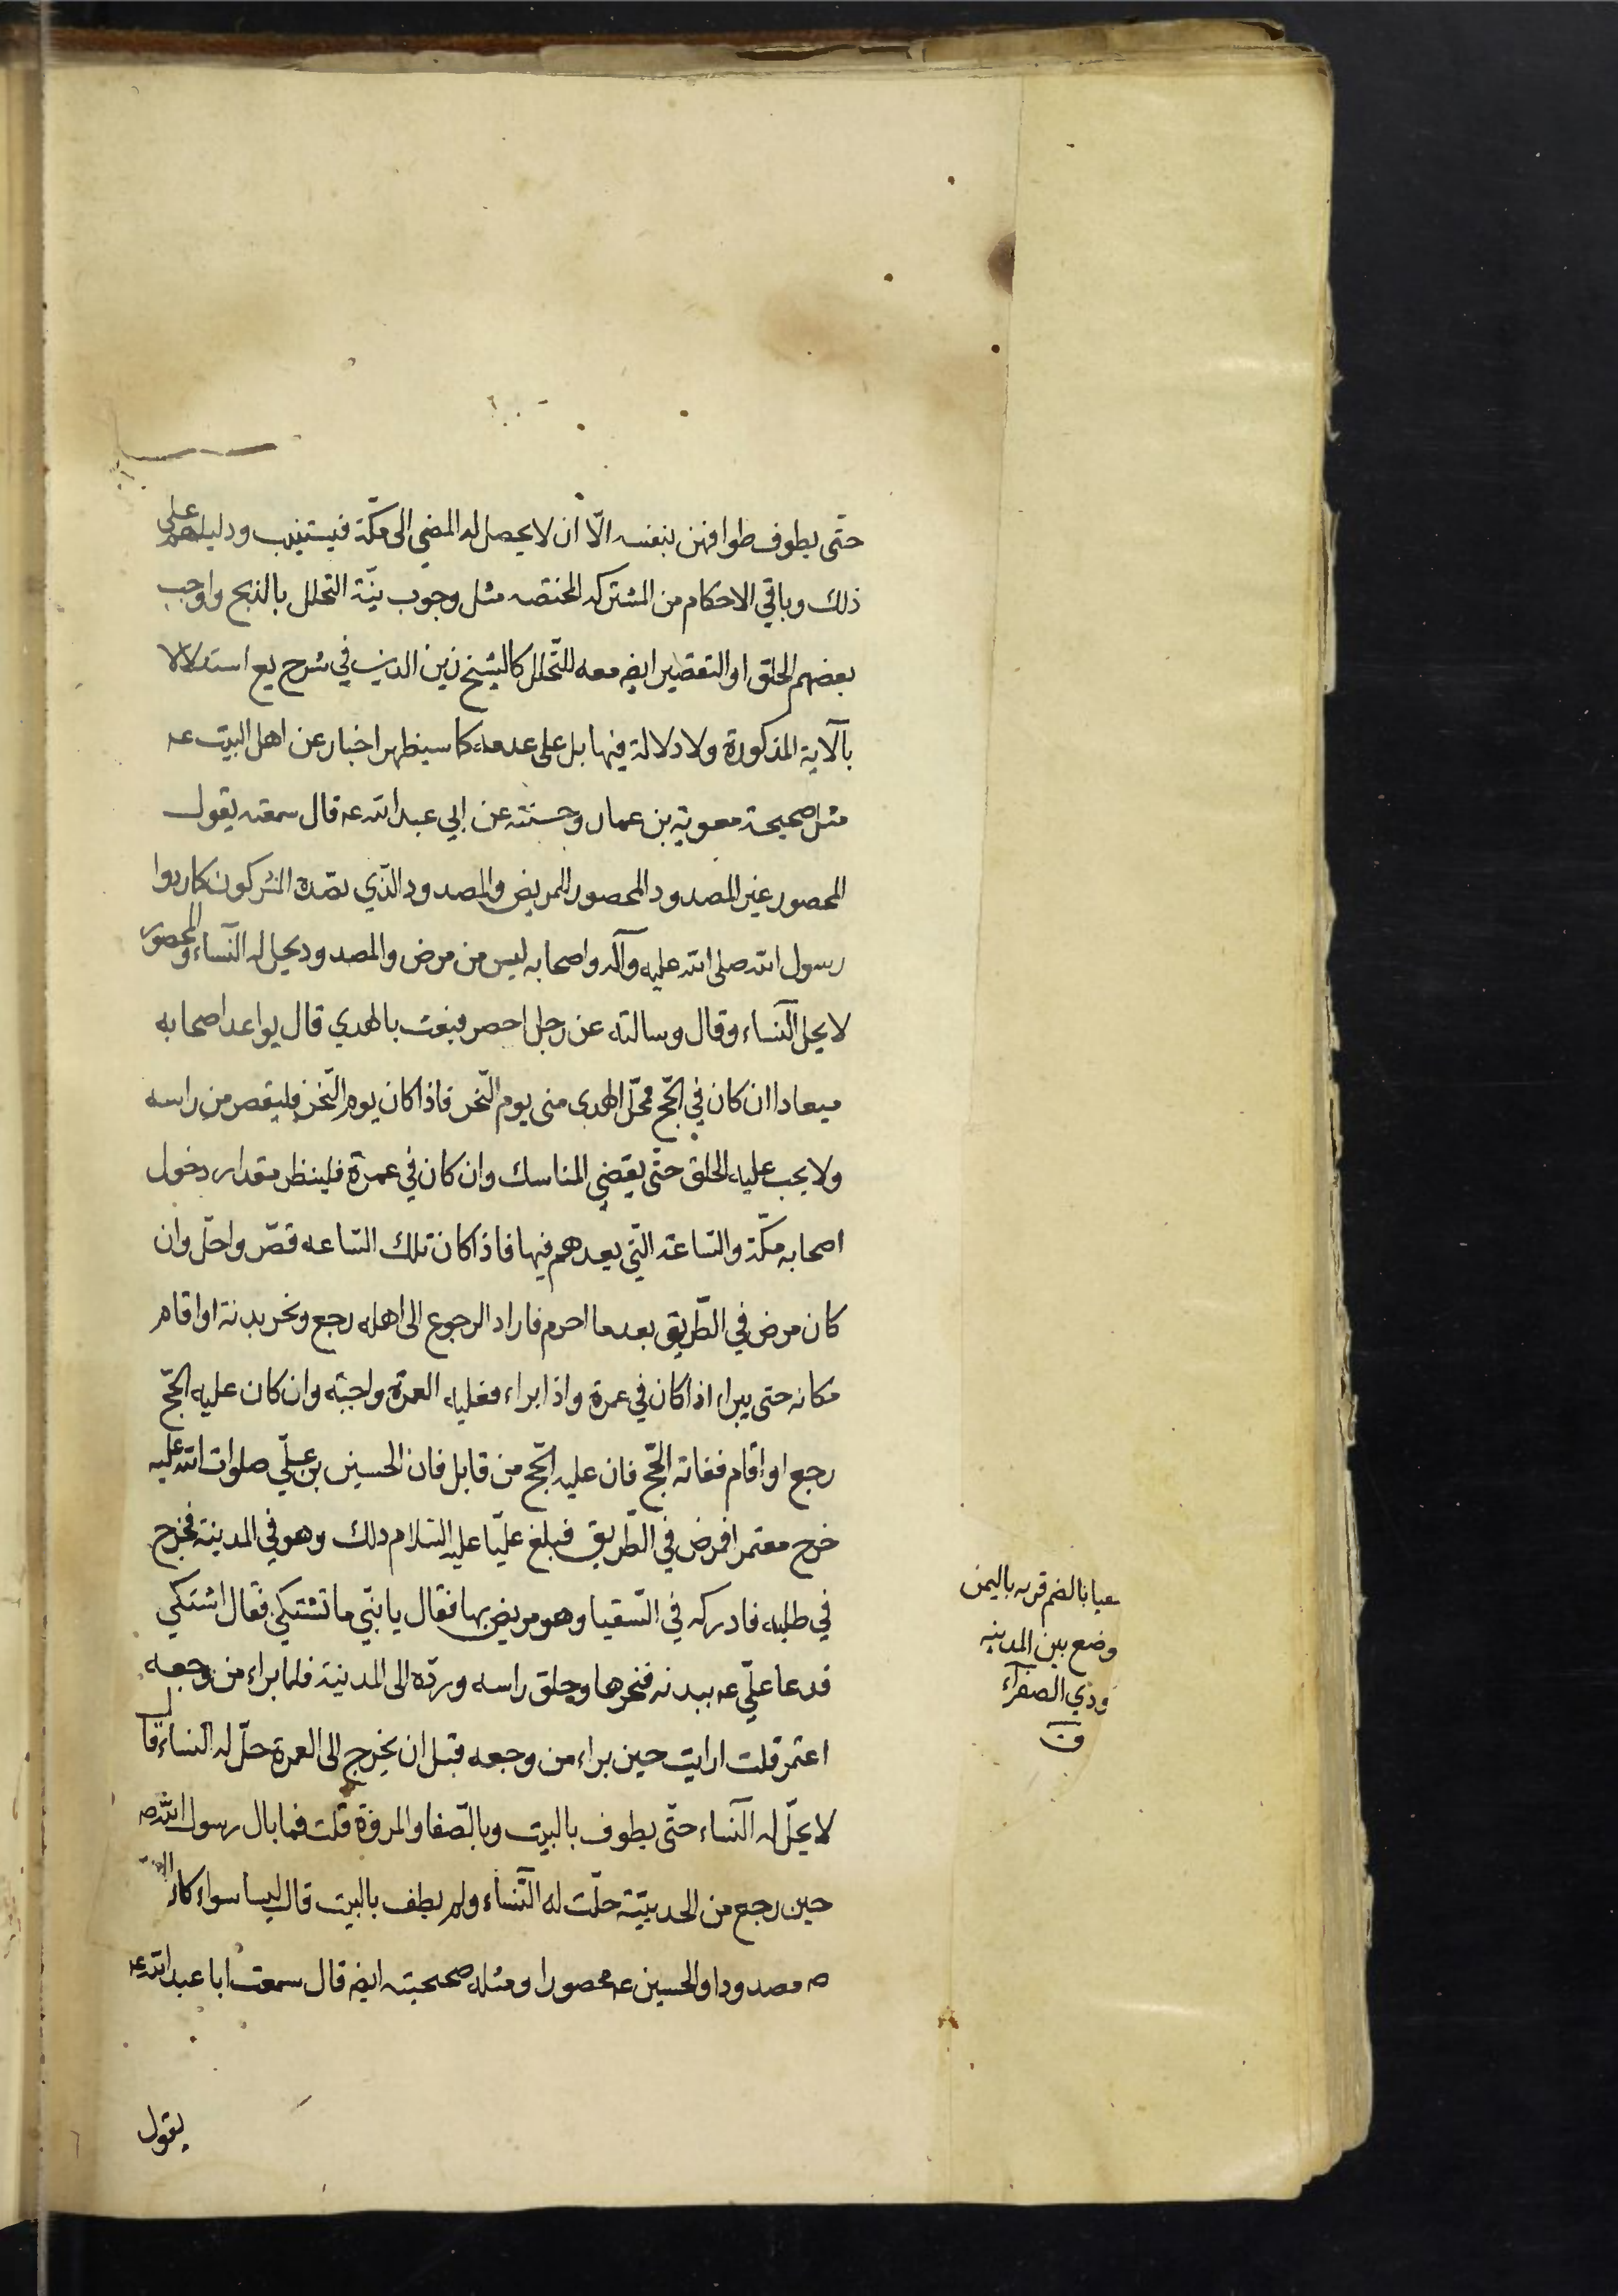 حتّى يطوف طوافهن بنفسه الّا ان لا يحصل له المضي الى مكّة فيستنيب ودليلهم على
ذلك وباقي الاحكام من المشتركه المختصه مثل وجوب نيّة التحلل بالذبح واوجب
بعضهم الحلق او التقصير ايضه معه للتّحلل كالشيخ زين الدين في شرح يع استدلالا
بالآية المذكورة ولا دلالة فيها بل على عدمه كما سيظهر اخبار عن اهل البيت عه
مثل صحيحة معوية بن عمار وحسنته عن ابي عبد الله عه قال سمعته يقول
المحصور غير المصدود المحصور المريض والمصدود الّذي يصّده المشركون كما ردوا
رسول الله صلى الله عليه وآله واصحابه ليس من مرض والمصدود يحل له النّساء والمحصور
لا يحل النّساء وقال وسالته عن رجل احصر فبعث بالهدي قال يواعد اصحابه
ميعادا ان كان في الحّج محّل الهدى منى يوم النّحر فاذا كان يوم النّحر فليقصر من راسه
ولا يجب عليه الحلق حتّى يقضي المناسك وان كان في عمرة فلينظر مقدار دخول
اصحابه مكّة والسّاعة الّتي يعدهم فيها فاذا كان تلك السّاعه قصّر واحلّ وان
كان مرض في الطّريق بعدما احرم فاراد الرجوع الى اهله رجع ونحر بدنة او اقام
مكانه حتى يبراء اذا كان في عمرة واذا براء فعليه العمرة واجبة وان كان عليه الحّج
رجع او اقام ففاته الحّج فان عليه الحّج من قابل فان الحسين بن علّي صلوات الله عليه
خرج معتمرا فمرض في الطّريق فبلغ عليّا عليه السّلام ذلك وهو في المدينة فخرج
في طلبه فادركه في السّقيا وهو مريض بها فقال يا بنّي ما تشتكي فقال اشتكي
فدعا علّي عه ببدنه فنحرها وحلق راسه وردّه الى المدينة فلما براء من وجعه
اعتمر قلت ارايت حين براء من وجعه قبل ان يخرج الى العمرة حلّ له النساء قال
لا يحلّ له النّساء حتّى يطوف بالبيت وبالصّفا والمروة قلت فما بال رسول الله صه
حين رجع من الحديبيّة حلّت له النّساء ولم يطف بالبيت قال ليسا سواء كان النبي
صه مصدودا والحسين عه محصورا ومثله صحيحته ايضه قال سمعت ابا عبد الله عه
يقول
سقيا بالضم قريه باليمن
وضع بين المدينه
ودي الصفرآء
ق